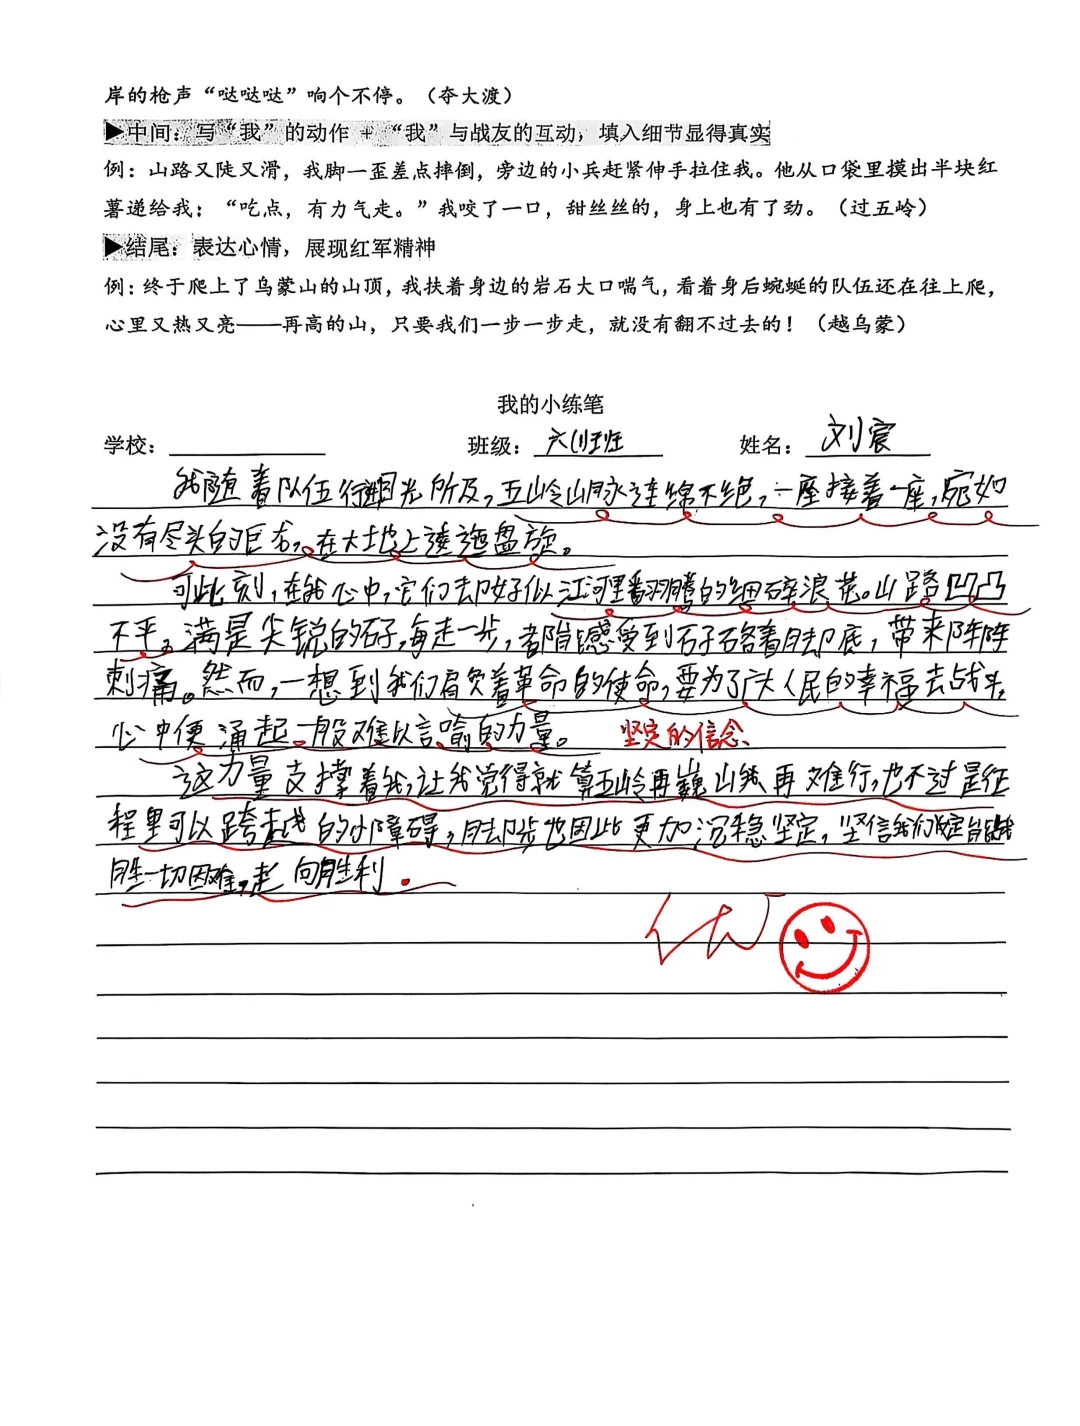 岸的枪声“哒哒哒”响个不停。（夺大渡）
▶中间：写“我”的动作 + “我”与战友的互动，填入细节显得真实
例：山路又陡又滑，我脚一歪差点摔倒，旁边的小兵赶紧伸手拉住我。他从口袋里摸出半块红
薯递给我：“吃点，有力气走。”我咬了一口，甜丝丝的，身上也有了劲。（过五岭）
▶结尾：表达心情，展现红军精神
例：终于爬上了乌蒙山的山顶，我扶着身边的岩石大口喘气，看着身后蜿蜒的队伍还在往上爬，
心里又热又亮——再高的山，只要我们一步一步走，就没有翻不过去的！（越乌蒙）
我的小练笔
学校： 班级：六(1)班 姓名：刘宸
我随着队伍行进目光所及，五岭山脉连绵不绝，一座接着一座，宛如
没有尽头的巨龙，在大地上逶迤盘旋。
可此刻，在我心中，它们却好似江河里翻腾的细碎浪花。山路凹凸
不平。满是尖锐的石子，每走一步，都能感受到石子硌着脚底，带来阵阵
刺痛。然而，一想到我们肩负着革命的使命，要为了广大人民的幸福去战斗，
心中便涌起一股难以言喻的力量。 坚定的信念、
这力量支撑着我，让我觉得就算五岭再巍山我再难行，也不过是征
程里可以跨越的小障碍，脚步也因此更加沉稳坚定，坚信我们定能战
胜一切困难，走向胜利。
优